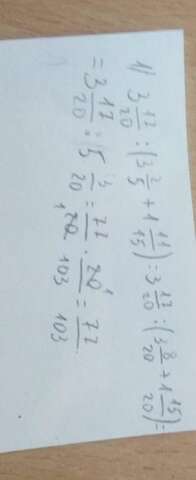 1) 3 17/20 : (3 2/5 + 1 11/15) = 3 17/20 : (3 8/20 + 1 15/20) =
= 3 17/20 : 5 3/20 = 77/20 · 20/103 = 77/103